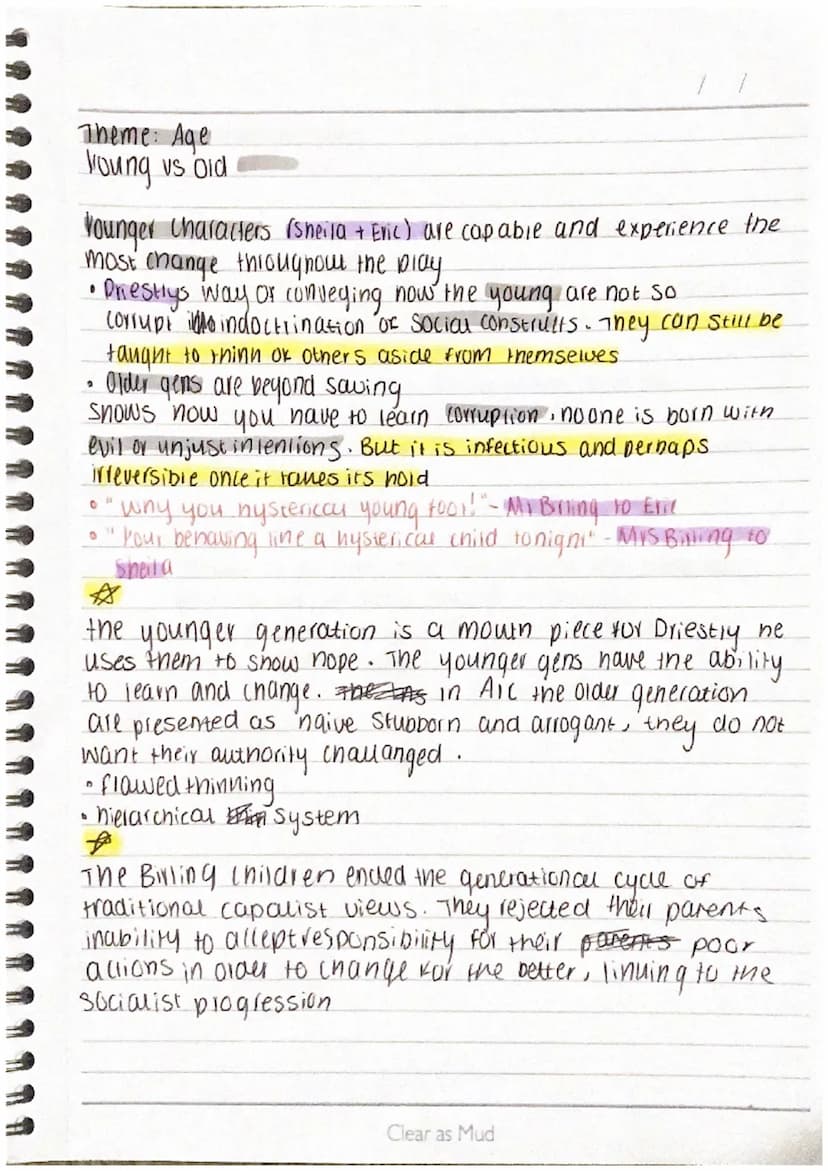 / /
Theme: Age
Young vs Old
Younger Characters (Sheila + Eric) are capable and experience the
most change throughout the play
• Priestlys way of conveying how the young are not so
corrupt indoctrination of social constructs. They can still be
taught to think of others aside from themselves
• Older gens are beyond saving
shows how you have to learn corruption, no one is born with
evil or unjust intentions. But it is infectious and perhaps
irreversible once it takes its hold
• "Why you hysterical young fool!" - Mr Birling to Eric
• "Your behaving like a hysterical child tonight" - Mrs Birling to
Sheila
☆
the younger generation is a mouth piece for Priestly he
uses them to show hope. The younger gens have the ability
to learn and change. in AIC the older generation
are presented as naive stubborn and arrogant, they do not
want their authority challanged.
• flawed thinking
• hierarchical system
☆
The Birling Children ended the generational cycle of
traditional capalist views. They rejected their parents
inability to accept responsibility for their parents poor
actions in order to change for the better, linking to the
socialist progression
Clear as Mud